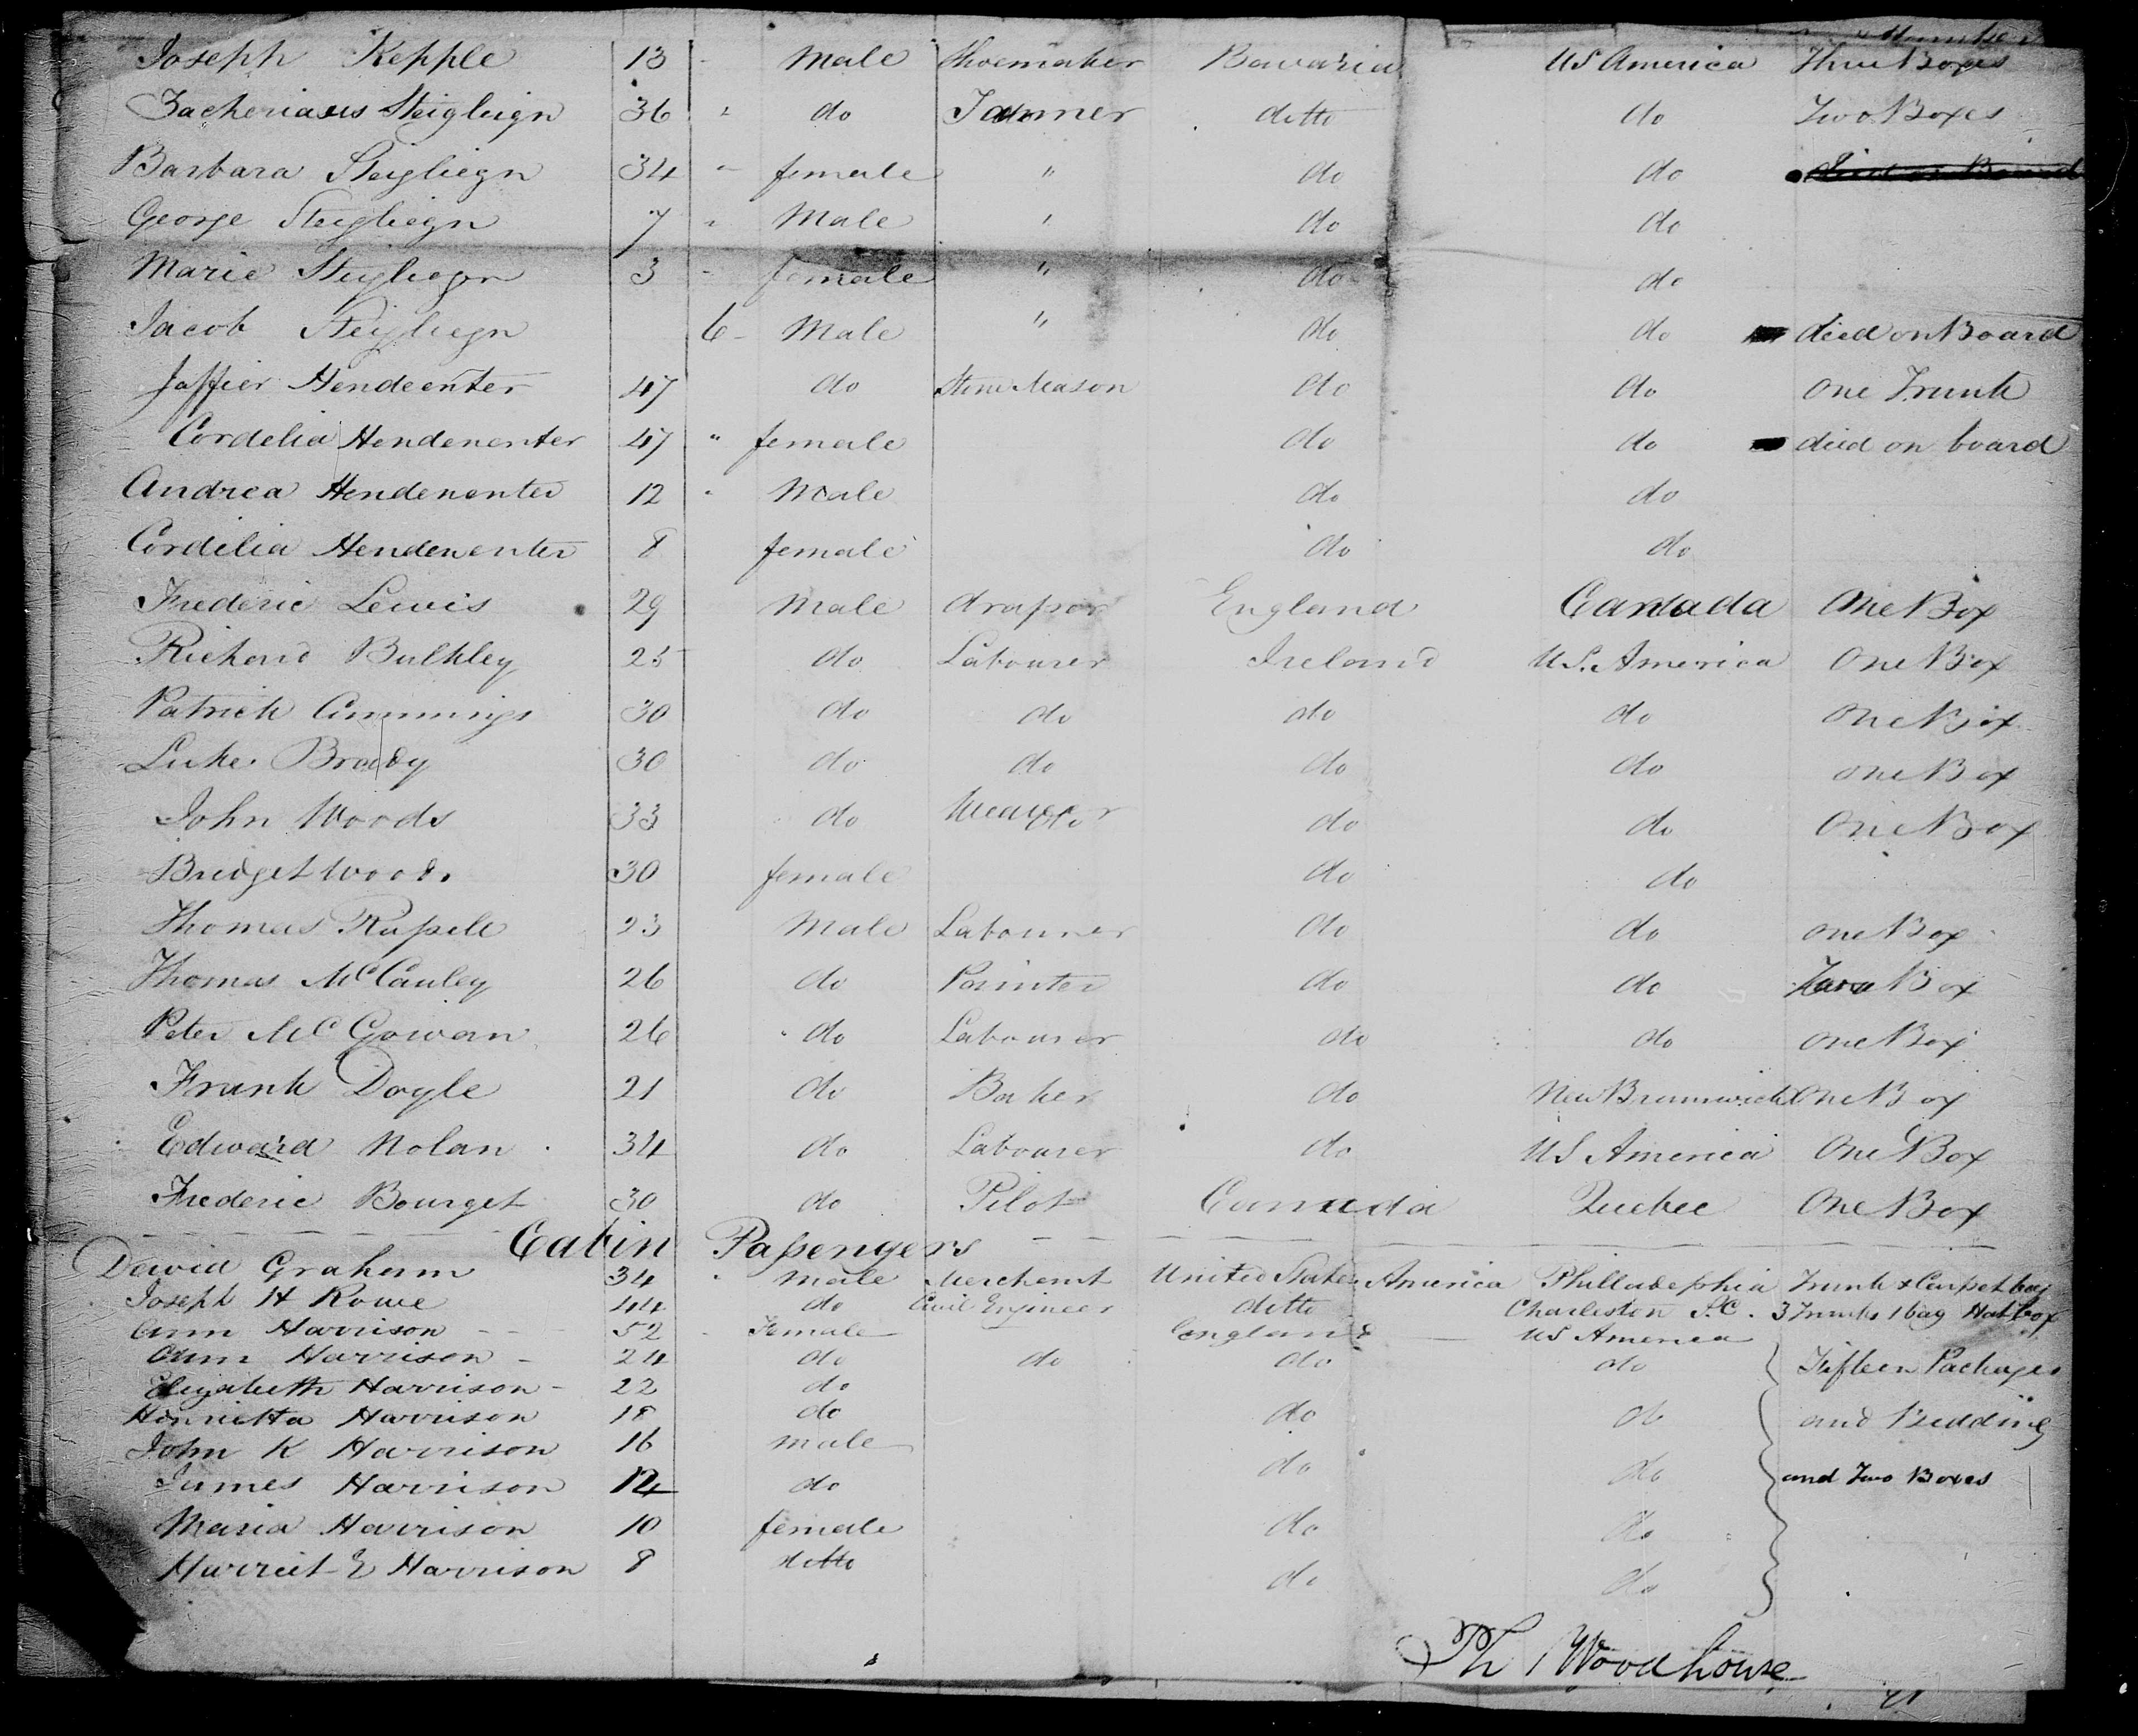 Joseph Kepple 13 - Male Shoemaker Bavaria US America Three Boxes
Zacheriaus Steigleign 36 " do Tanner ditto do Two Boxes
Barbara Steigliegn 34 " female " do do died on Board
George Steigliegn 7 " Male " do do
Marie Steigliegn 3 - female " do do
Jacob Steigliegn 6 - Male " do do died on Board
Jaffier Hendeenter 47 do Stone Mason do do one Trunk
Cordelia Hendenenter 47 " female do do died on board
Andrea Hendenenter 12 " Male do do
Cordilia Hendenenter 8 female do do
Frederic Lewis 29 Male draper England Canada One Box
Richard Bulkley 25 do Labourer Ireland U.S. America One Box
Patrick Cummings 30 do do do do One Box
Luke Brady 30 do do do do one Box
John Woods 33 do Weaver do do One Box
Bridget Woods 30 female do do
Thomas Russell 23 Male Labourer do do one Box
Thomas McCauley 26 do Painter do do Box
Peter McGowan 26 do Labourer do do one Box
Frank Doyle 21 do Baker do New Brunswick One Box
Edward Nolan 34 do Labourer do US America One Box
Frederic Bourget 30 do Pilot Canada Quebec One Box
Cabin Passengers
David Graham 34 " Male Merchant United States America Philladephia Trunk & Carpet bag
Joseph H Rowe 44 do Civil Engineer ditto Charleston S.C. 3 Trunks 1 bag Hat box
Ann Harrison 52 - Female England US America
Ann Harrison - 24 do do do do Fifteen Packages
Elizabeth Harrison - 22 do
Henrietta Harrison 18 do do do and Bedding
John K Harrison 16 male
James Harrison 14 do do do and Two Boxes
Maria Harrison 10 female do do
Harriet E Harrison 8 ditto do do
Th Woodhouse